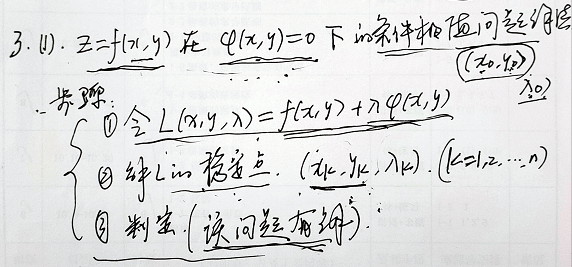 3.(1). z=f(x,y) 在 φ(x,y)=0 下的条件极值问题解法
(x₀,y₀)
λ₀)
步骤:
① 令 L(x,y,λ)=f(x,y)+λφ(x,y)
② 解L的稳定点. (xₖ,yₖ,λₖ). (k=1,2,…,n)
③ 判定.(该问题有解).